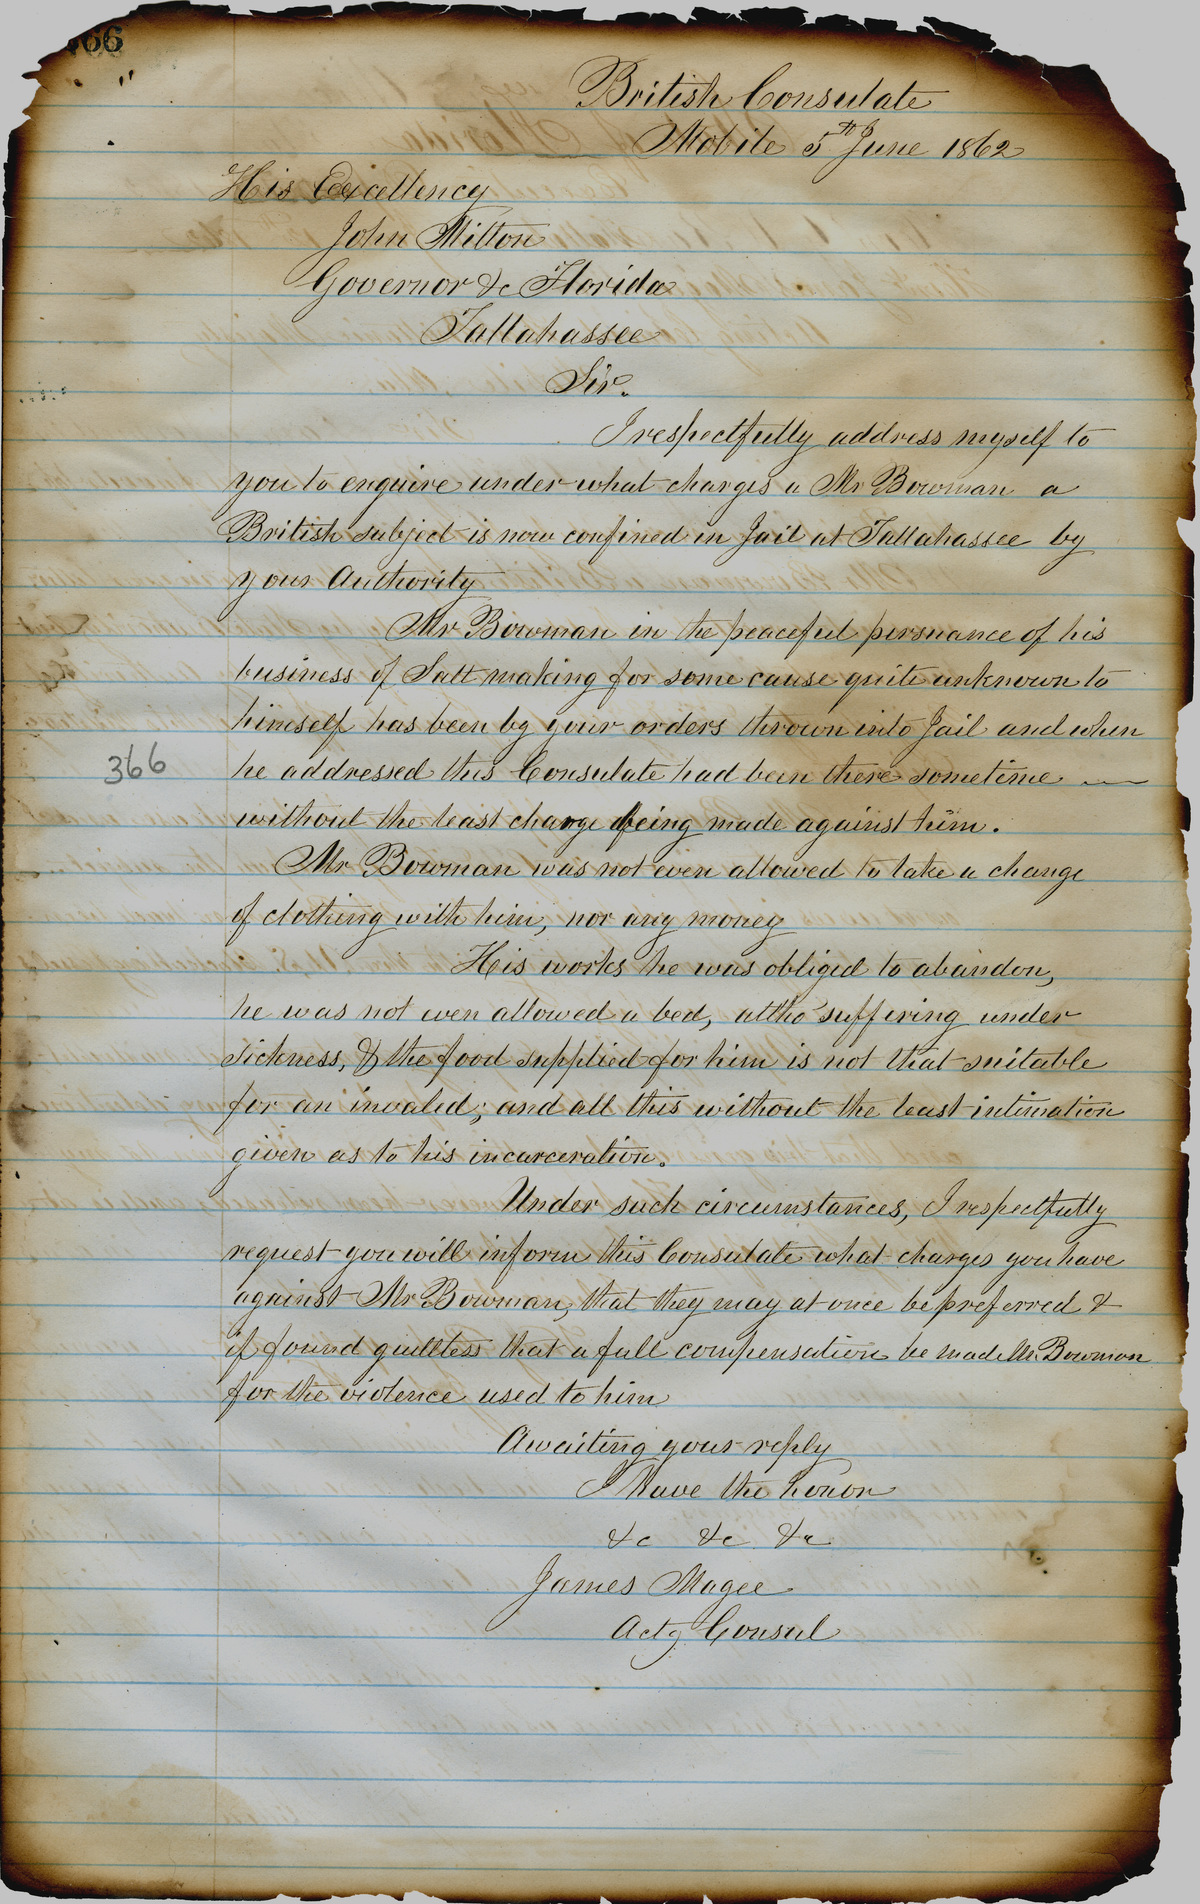 66
British Consulate
Mobile 5th June 1862
His Excellency
John Milton
Governor &c Florida
Tallahassee
Sir.
I respectfully address myself to
you to enquire under what charges a Mr Bowman a
British subject is now confined in Jail at Tallahassee by
your Authority
Mr Bowman in the peaceful persuance of his
business of Salt making for some cause quite unknown to
himself has been by your orders thrown into Jail and when
366
he addressed this Consulate had been there sometime —
without the least charge being made against him.
Mr Bowman was not even allowed to take a change
of clothing with him, nor any money
His works he was obliged to abandon,
he was not even allowed a bed, altho' suffering under
sickness, & the food supplied for him is not that suitable
for an invalid; and all this without the least intimation
given as to his incarceration.
Under such circumstances, I respectfully
request you will inform this Consulate what charges you have
against Mr Bowman, that they may at once be preferred &
if found guiltless that a full compensation be made Mr. Bowman
for the violence used to him
Awaiting your reply
I have the honor
&c &c &c
James Magee
Actg Consul